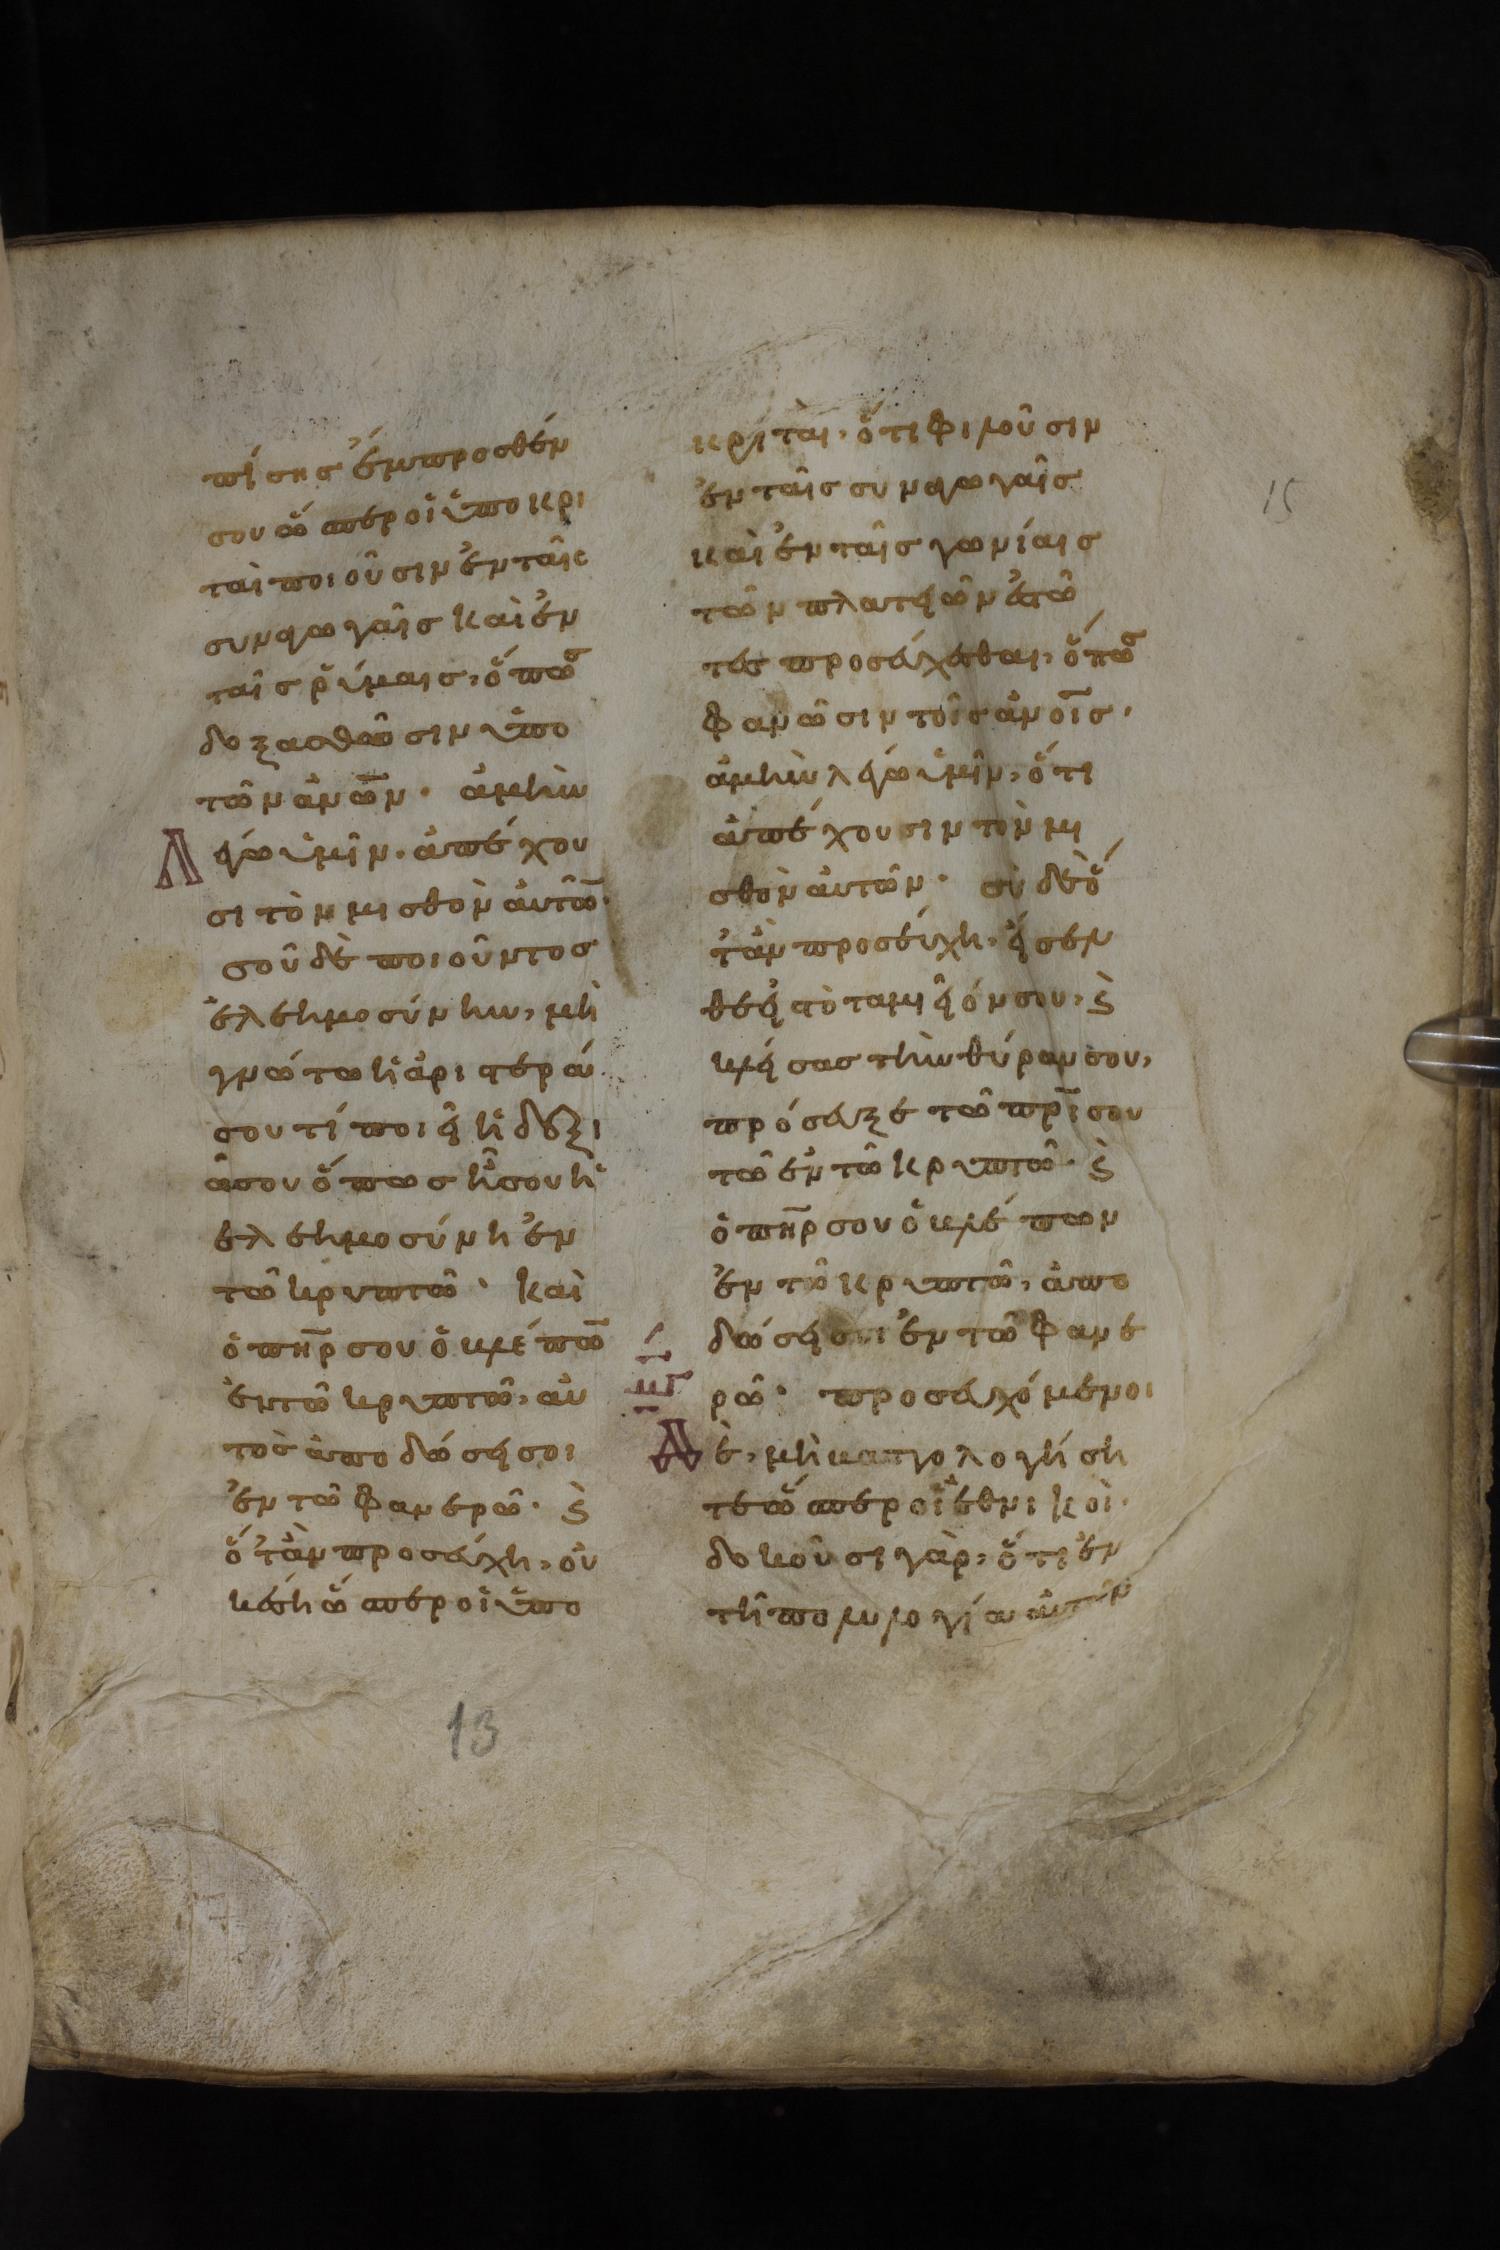 πίσης ἔμπροσθέν
σου ὥσπερ οἱ ὑποκρι
ταὶ ποιοῦσιν ἐν ταῖς
συναγωγαῖς καὶ ἐν
ταῖς ῥύμαις, ὅπως
δοξασθῶσιν ὑπὸ
τῶν ἀνω̅ν· ἀμὴν
Λέγω ὑμῖν· ἀπέχου
σι τὸν μισθὸν αὐτῶ̅·
σοῦ δὲ ποιοῦντος
ἐλεημοσύνην, μὴ
γνώτω ἡ ἀριστερά
σου τί ποιεῖ ἡ δεξι
ᾶ σου ὅπως ἦ σου ἡ
ἐλεημοσύνη ἐν
τῶ κρυπτῶ· καὶ
ὁ πη̅ρ σου ὁ βλέπω̅
ἐν τῶ κρυπτῶ, αὐ
τὸς ἀποδώσει σοι
ἐν τῶ φανερῶ· ϗ
ὅταν προσεύχη, οὐκ
ἔση ὥσπερ οἱ ὑπο
κριταὶ, ὅτι φιλοῦσιν
ἐν ταῖς συναγωγαῖς
καὶ ἐν ταῖς γωνίαις
τῶν πλατειῶν ἑστῶ
τες προσεύχεσθαι, ὅπως
φανῶσιν τοῖς ἀνοι̅ς,
ἀμὴν λέγω ὑμῖν, ὅτι
ἀπέχουσιν τὸν μι
σθὸν αὐτῶν· σὺ δὲ ὅ
ταν προσεύχη, εἴσελ
θε εἰς τὸ ταμιεῖόν σου, ϗ
κλείσας τὴν θύραν σου,
πρόσευξε τῶ πρ̅ι σου
τῶ ἐν τῶ κρυπτῶ· ϗ
ὁ πη̅ρ σου ὁ βλέπων
ἐν τῶ κρυπτῶ, ἀπο
δώσει σοι ἐν τῶ φανε
ρῶ· προσευχόμενοι
Δὲ, μὴ βαττολογήση
τε ὥσπερ οἱ ἐθνικοὶ·
δοκοῦσι γὰρ, ὅτι ἐν
τῆ πολυλογία αὐτῶν
15
13